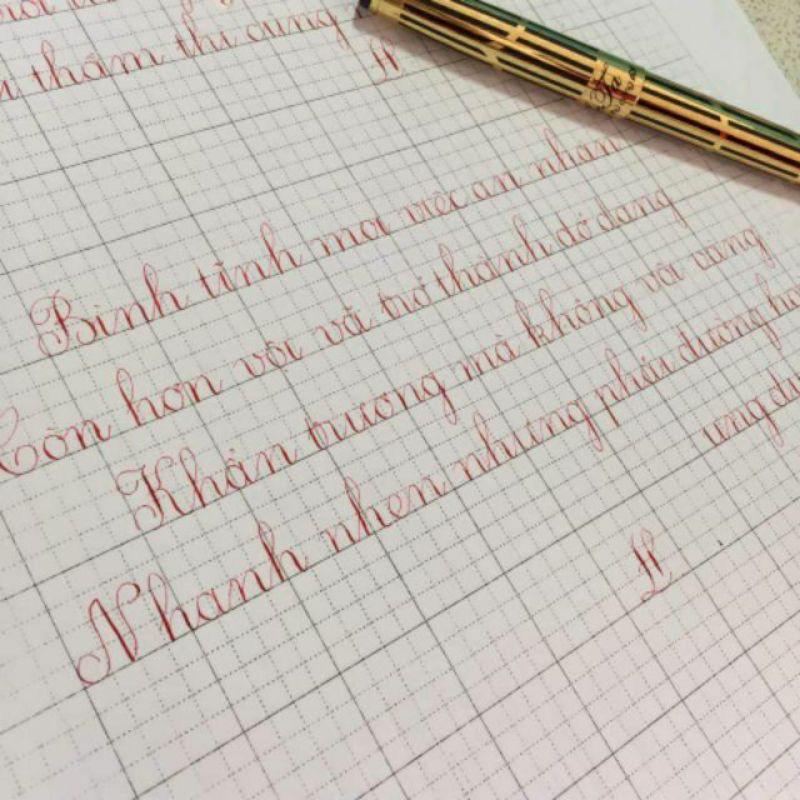 thấm thì cũng
Bình tĩnh mọi việc an nhàn
Còn hơn vội vã trở thành dở dang
Khẩn trương mà không vội vàng
Nhanh nhẹn nhưng phải đường ho
ung du